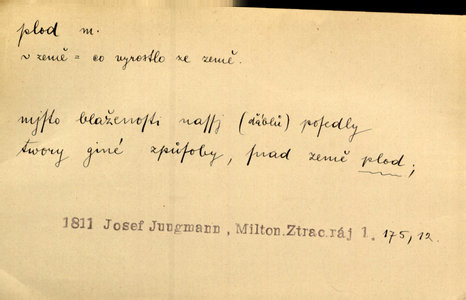 plod m.
~ země = co vyrostlo ze země.
mjsto blaženosti nassj (ďáblů) posedly
twory giné způsoby, snad země plod;
1811 Josef Jungmann, Milton.Ztrac.ráj 1. 175, 12.